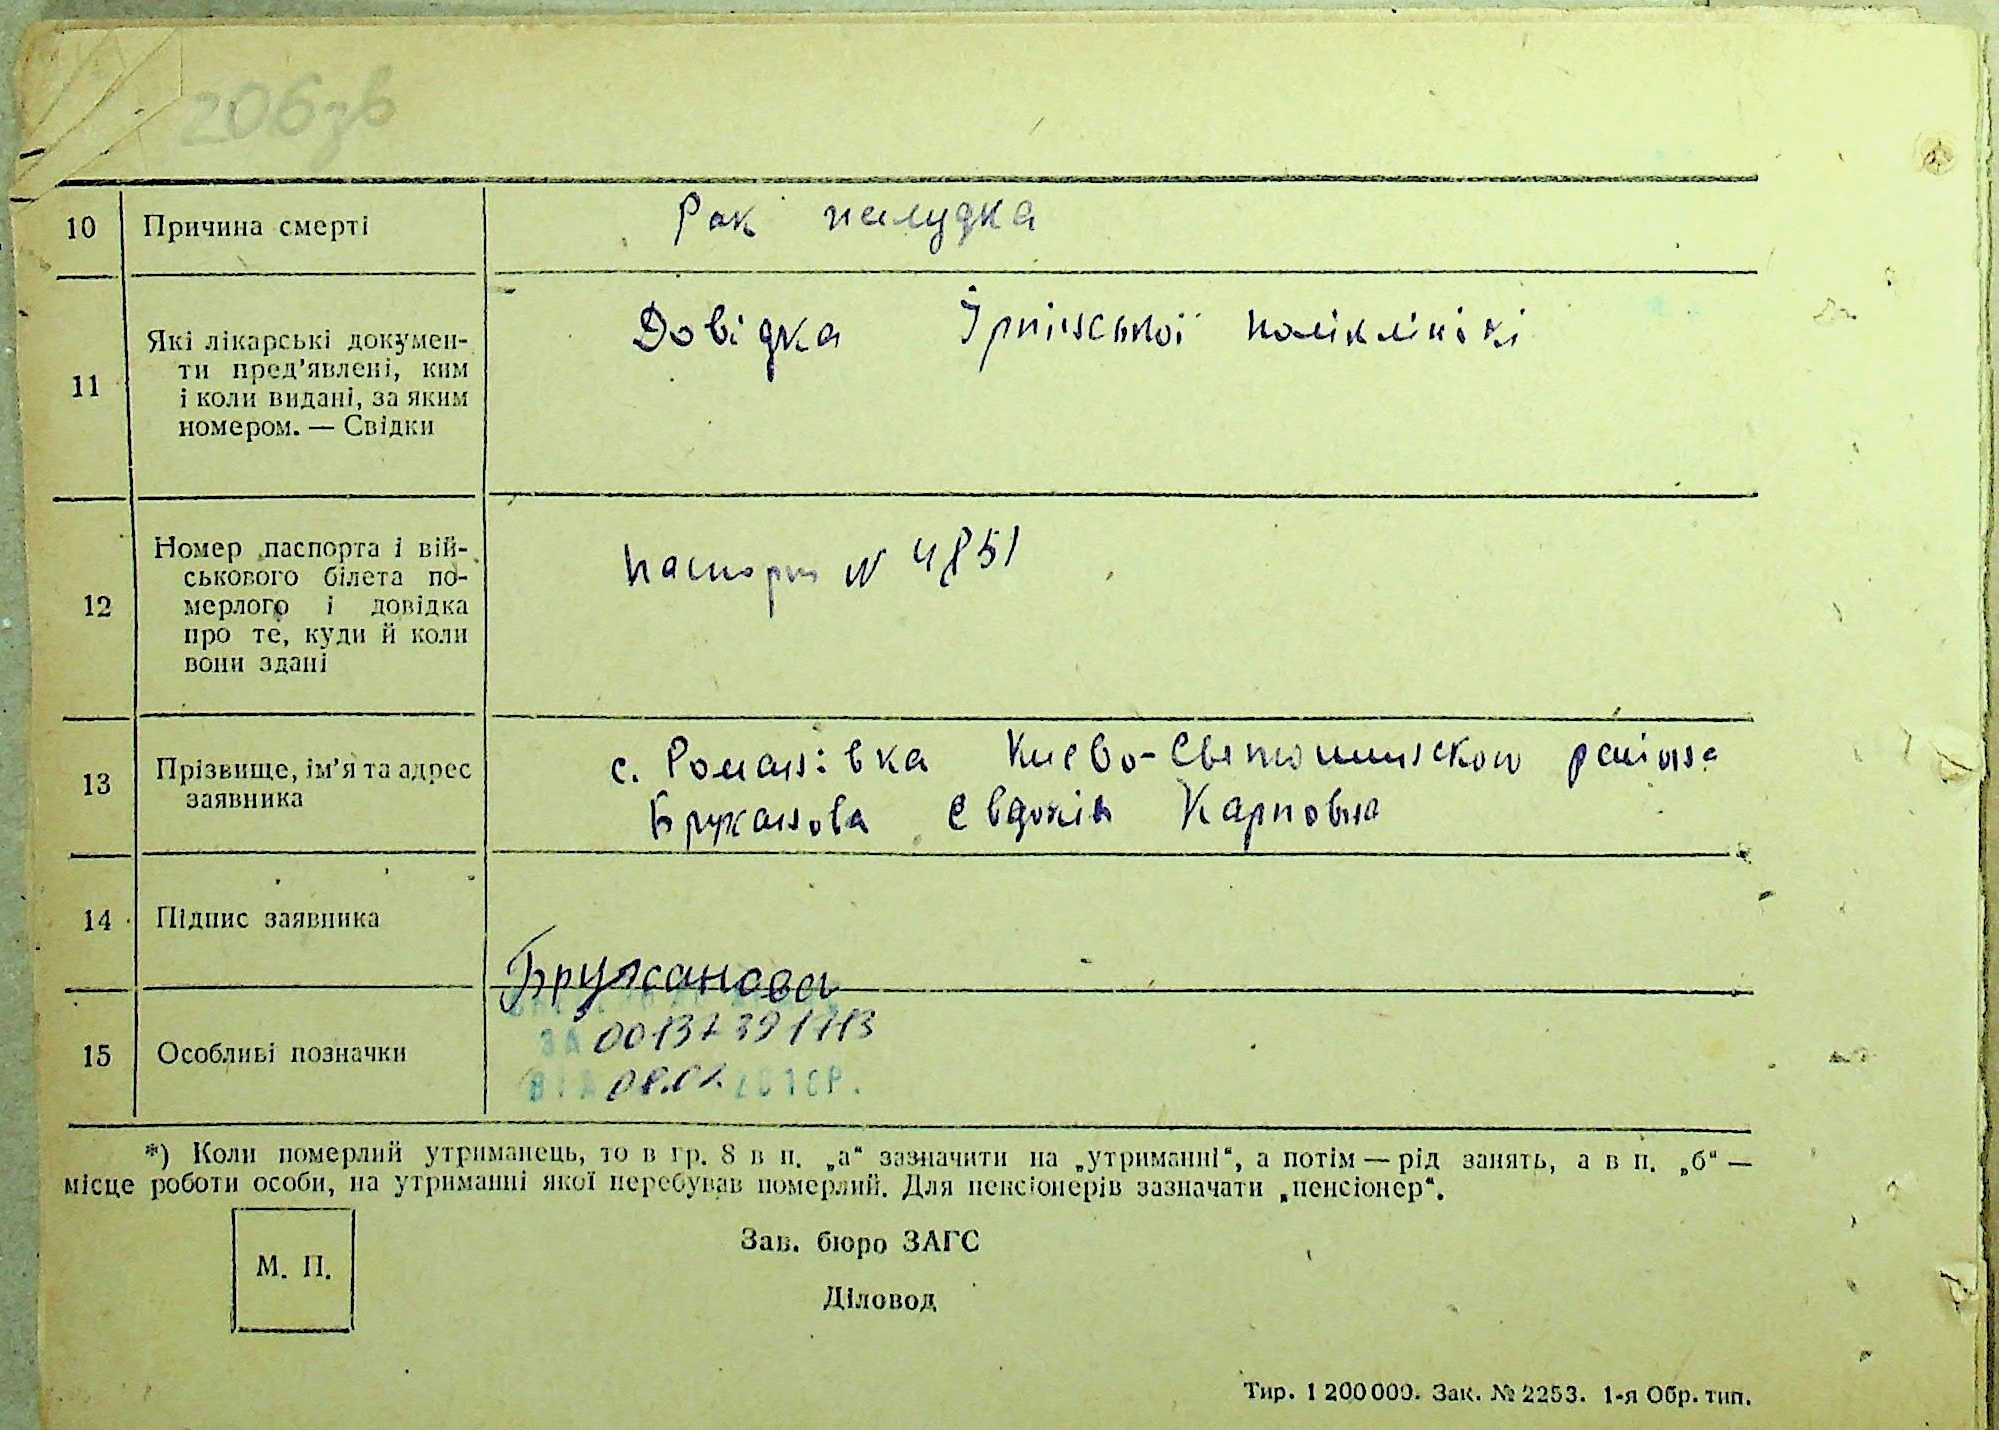 206зв
10 Причина смерті Рак шлудка
11 Які лікарські докумен-
ти пред’явлені, ким
і коли видані, за яким
номером. — Свідки
Довідка Ірпінської поліклініки
12 Номер паспорта і вій-
ськового білета по-
мерлого і довідка
про те, куди й коли
вони здані
паспорт N 4851
13 Прізвище, ім’я та адрес
заявника
с. Романівка Києво-Святошинского району
Бружанова Євдокія Карповна
14 Підпис заявника
Бружанова
15 Особливі позначки
ЗА 00137391713
ВІД 08.02. 2010Р.
*) Коли померлий утриманець, то в гр. 8 в п. „а“ зазначити на „утриманні“, а потім — рід занять, а в п. „б“ —
місце роботи особи, на утриманні якої перебував померлий. Для пенсіонерів зазначати „пенсіонер“.
М. П.
Зав. бюро ЗАГС
Діловод
Тир. 1 200 000. Зак. № 2253. 1-я Обр. тип.